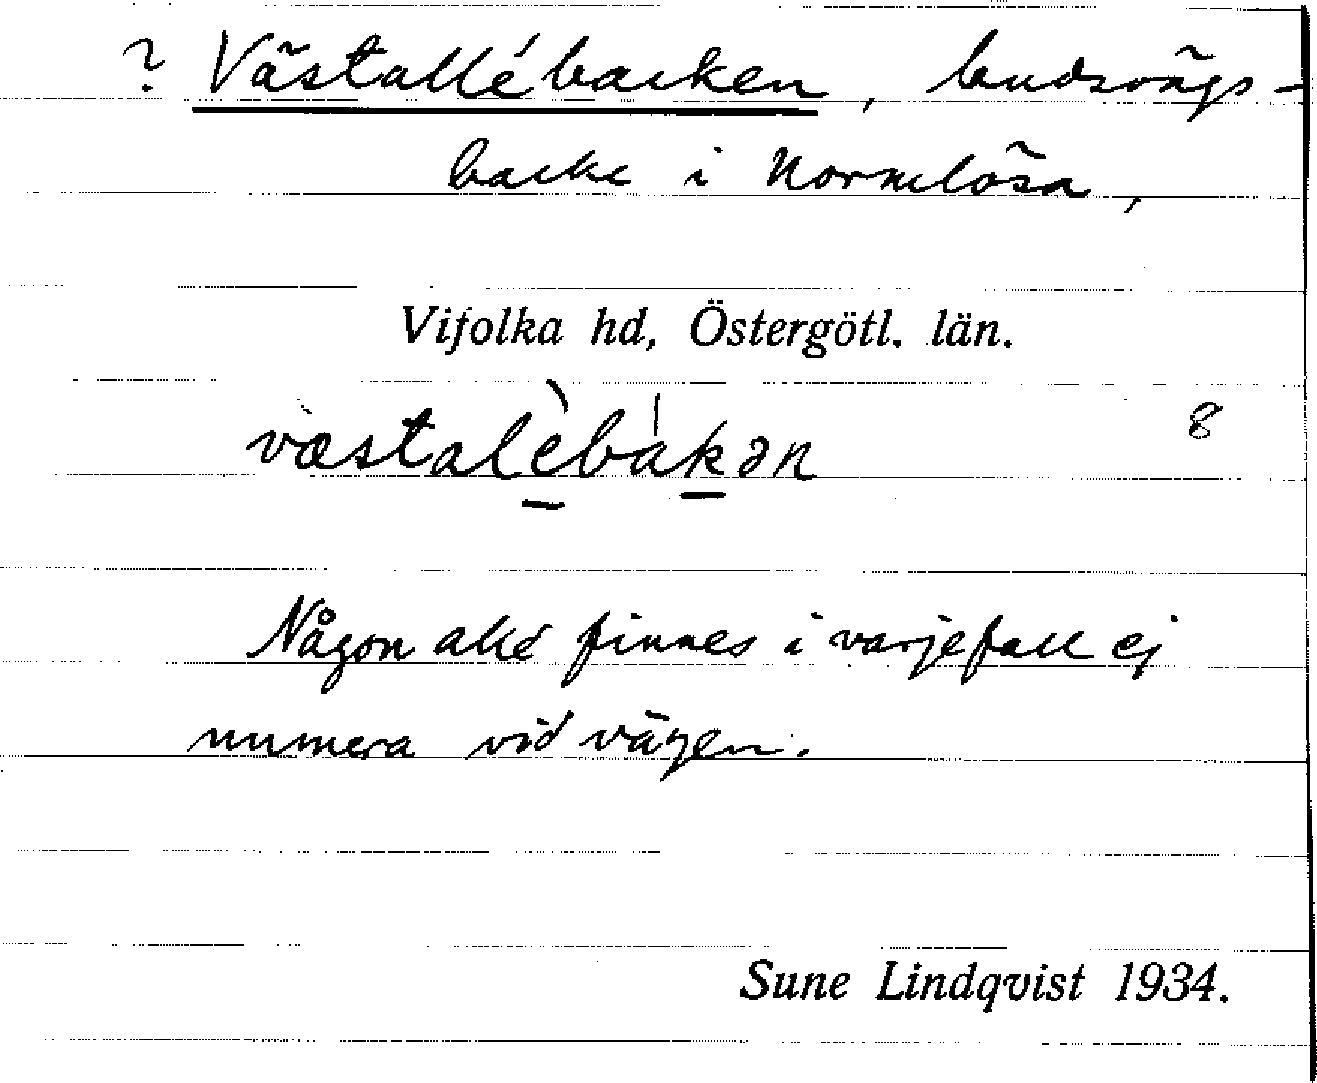 ? Västallébacken, landsvägs-
backe i Normlösa,
Vifolka hd, Östergötl. län.
væstalèbákən 8
Någon allé finnes i varjefall ej
numera vid vägen.
Sune Lindqvist 1934.